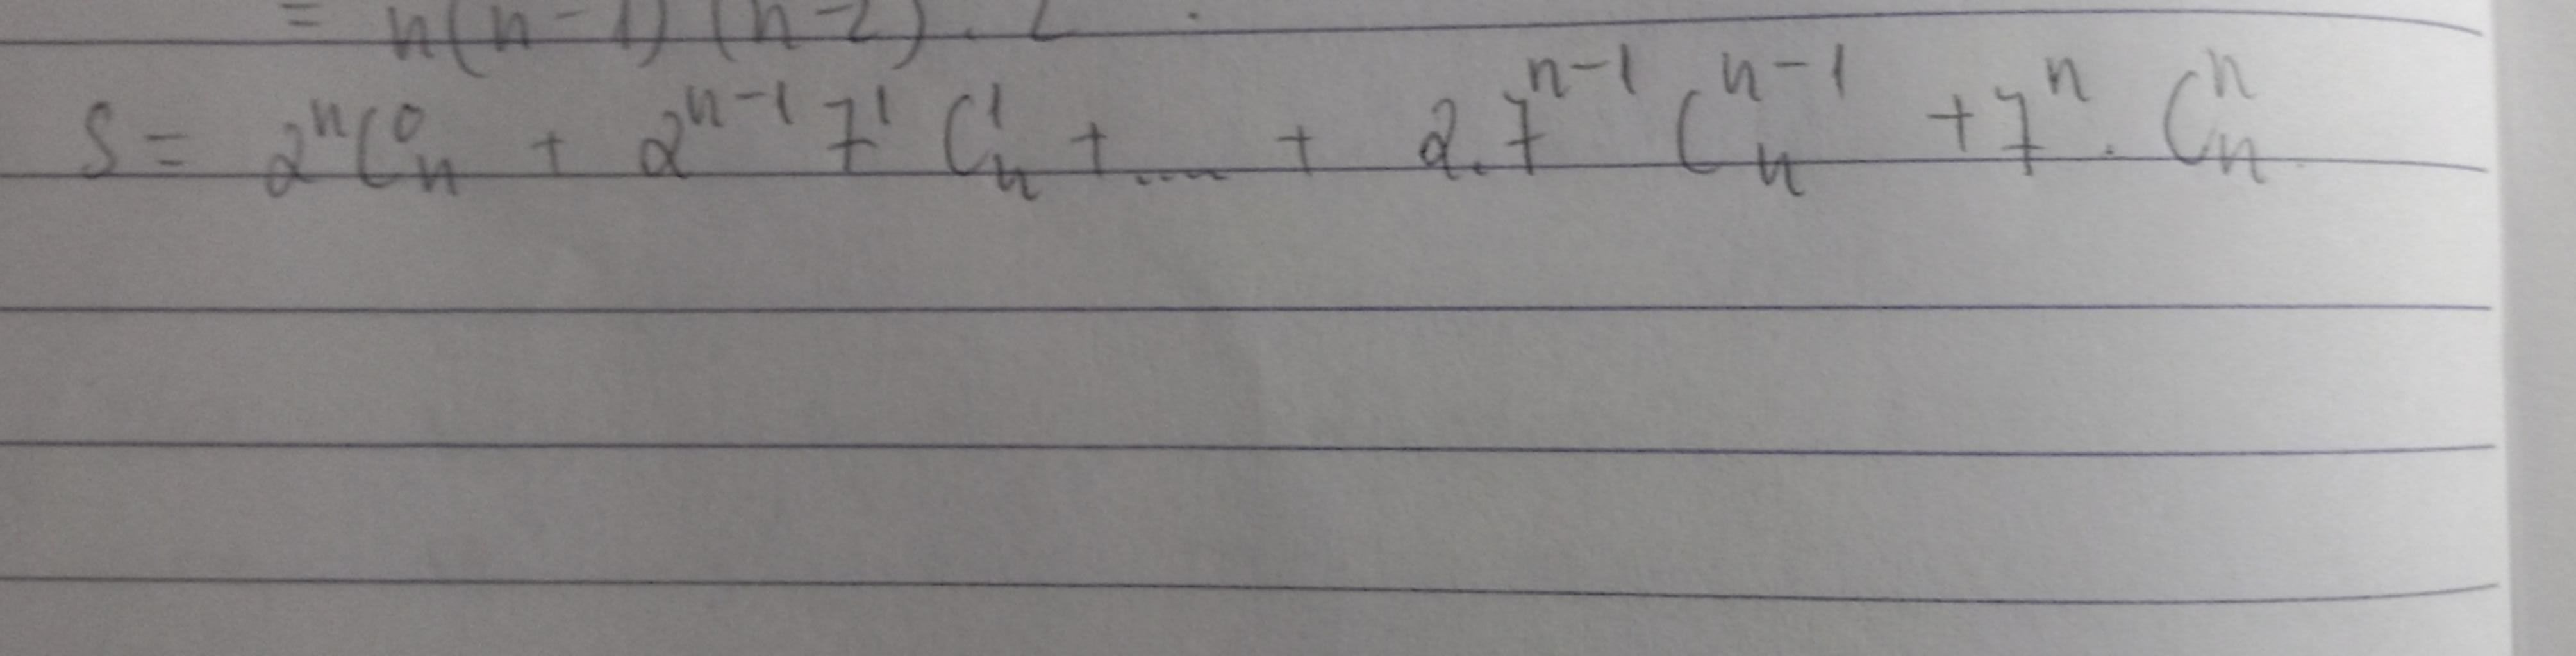 = n(n-1)(n-2).2
S = 2ⁿC⁰ₙ + 2ⁿ⁻¹7¹C¹ₙ + .... + 2.7ⁿ⁻¹Cⁿ⁻¹ₙ + 7ⁿ.Cⁿₙ